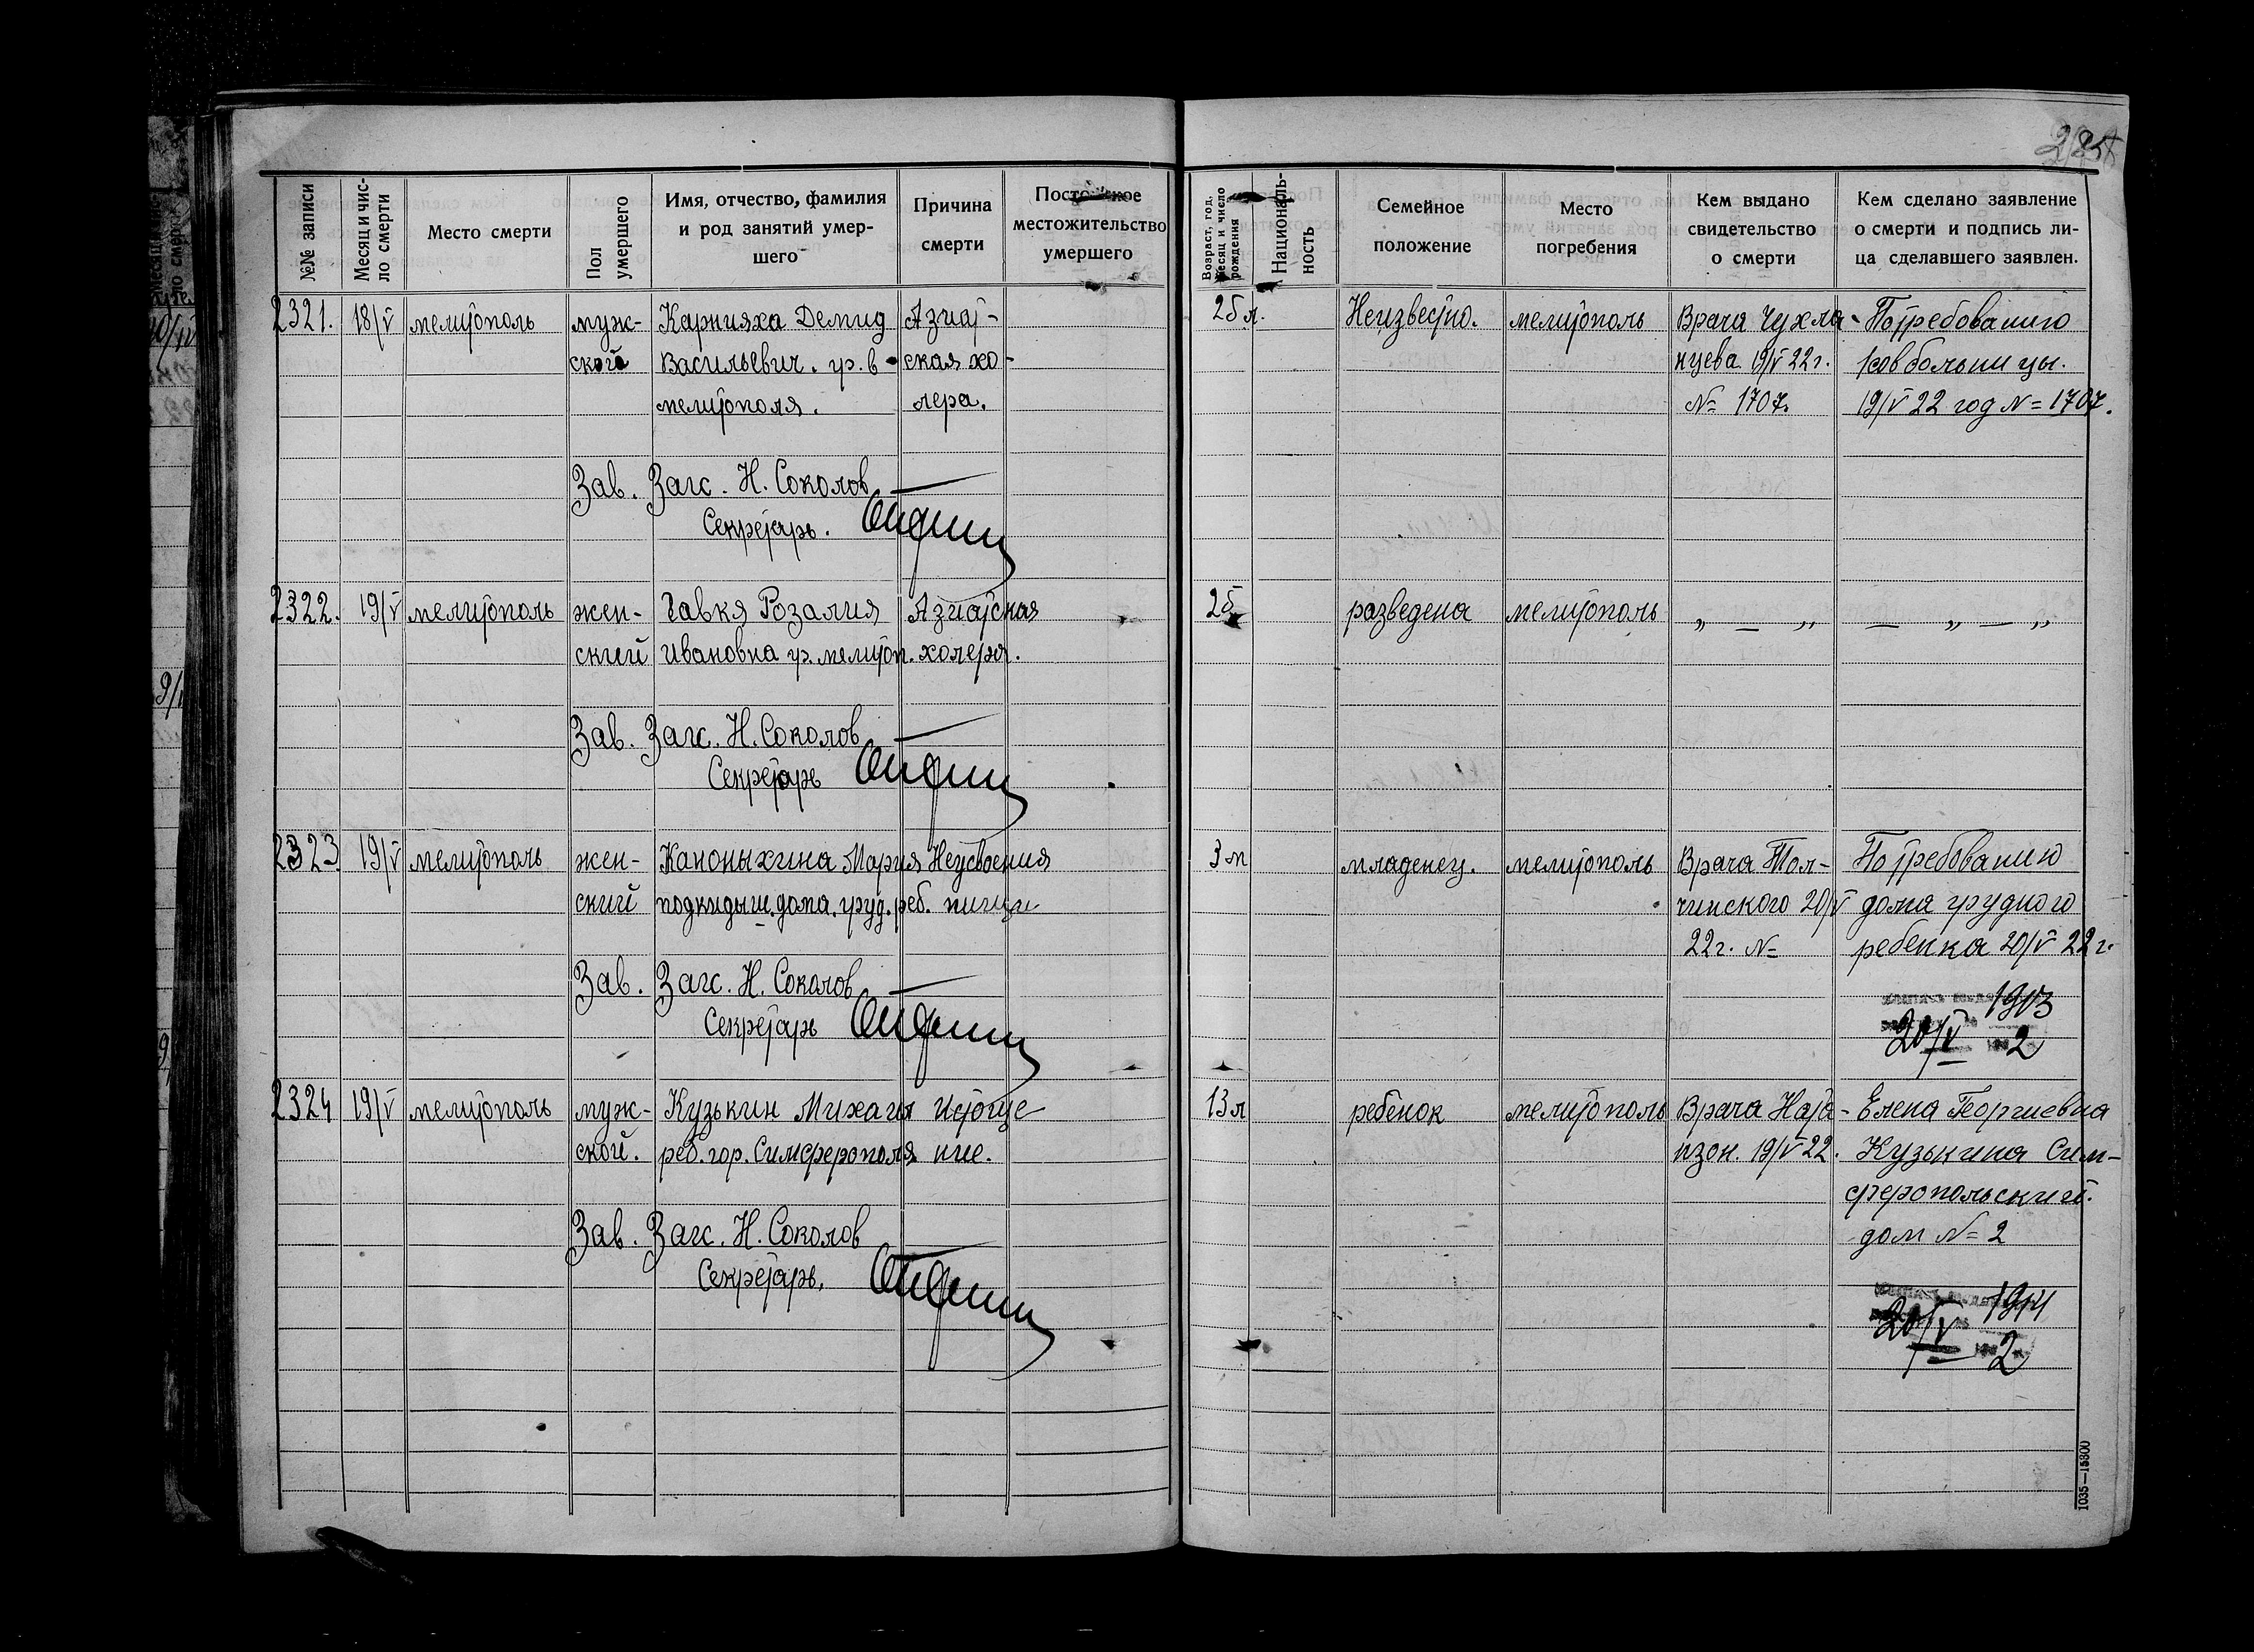 №№ записи
Месяц и чис-
ло смерти
Место смерти
Пол
умершего
Имя, отчество, фамилия
и род занятий умер-
шего
Причина
смерти
местожительство
умершего
Возраст, год,
месяц и число
рождения
Националь-
ность
Семейное
положение
Место
погребения
Кем выдано
свидетельство
о смерти
Кем сделано заявление
о смерти и подпись ли-
ца сделавшего заявлен.
2321. 18/V мелитополь муж- Карнияха Демид Азиат- Неизвестно. мелитополь Врача Чухла- По требованию
ского Васильевич. гр. в ская хо- нцева 19/V 22 г. совбольницы.
мелитополя. лера. № 1707. 19/V 22 год № 1707.
Зав. Загс. Н. Соколов
Секретарь.
2322. 19/V мелитополь жен- Гавкя Розалия Азиатская разведена мелитополь „ — „ — „ — „
ский Ивановна гр. мелитоп. холера.
Зав. Загс. Н. Соколов
Секретарь
2323 19/V мелитополь жен- Каноныхина Мария Неусвоения 3 м младенец. мелитополь Врача Тол- По требованию
ский подкидыш. дома. груд. реб. пищи чинского 20/V дома грудного
22 г. № ребенка 20/V 22 г.
Зав. Загс. Н. Соколов
1913
Секретарь
20/V 2
2324 19/V мелитополь муж- Кузькин Михаил Истоще 13 л ребенок мелитополь Врача Ната- Елена Георгиевна
ской. реб. гор. Симферополя ние. нзон. 19/V 22. Кузькина Сим-
феропольский.
Зав. Загс. Н. Соколов дом № 2
Секретарь.
1914
20/V 2
1035—15800